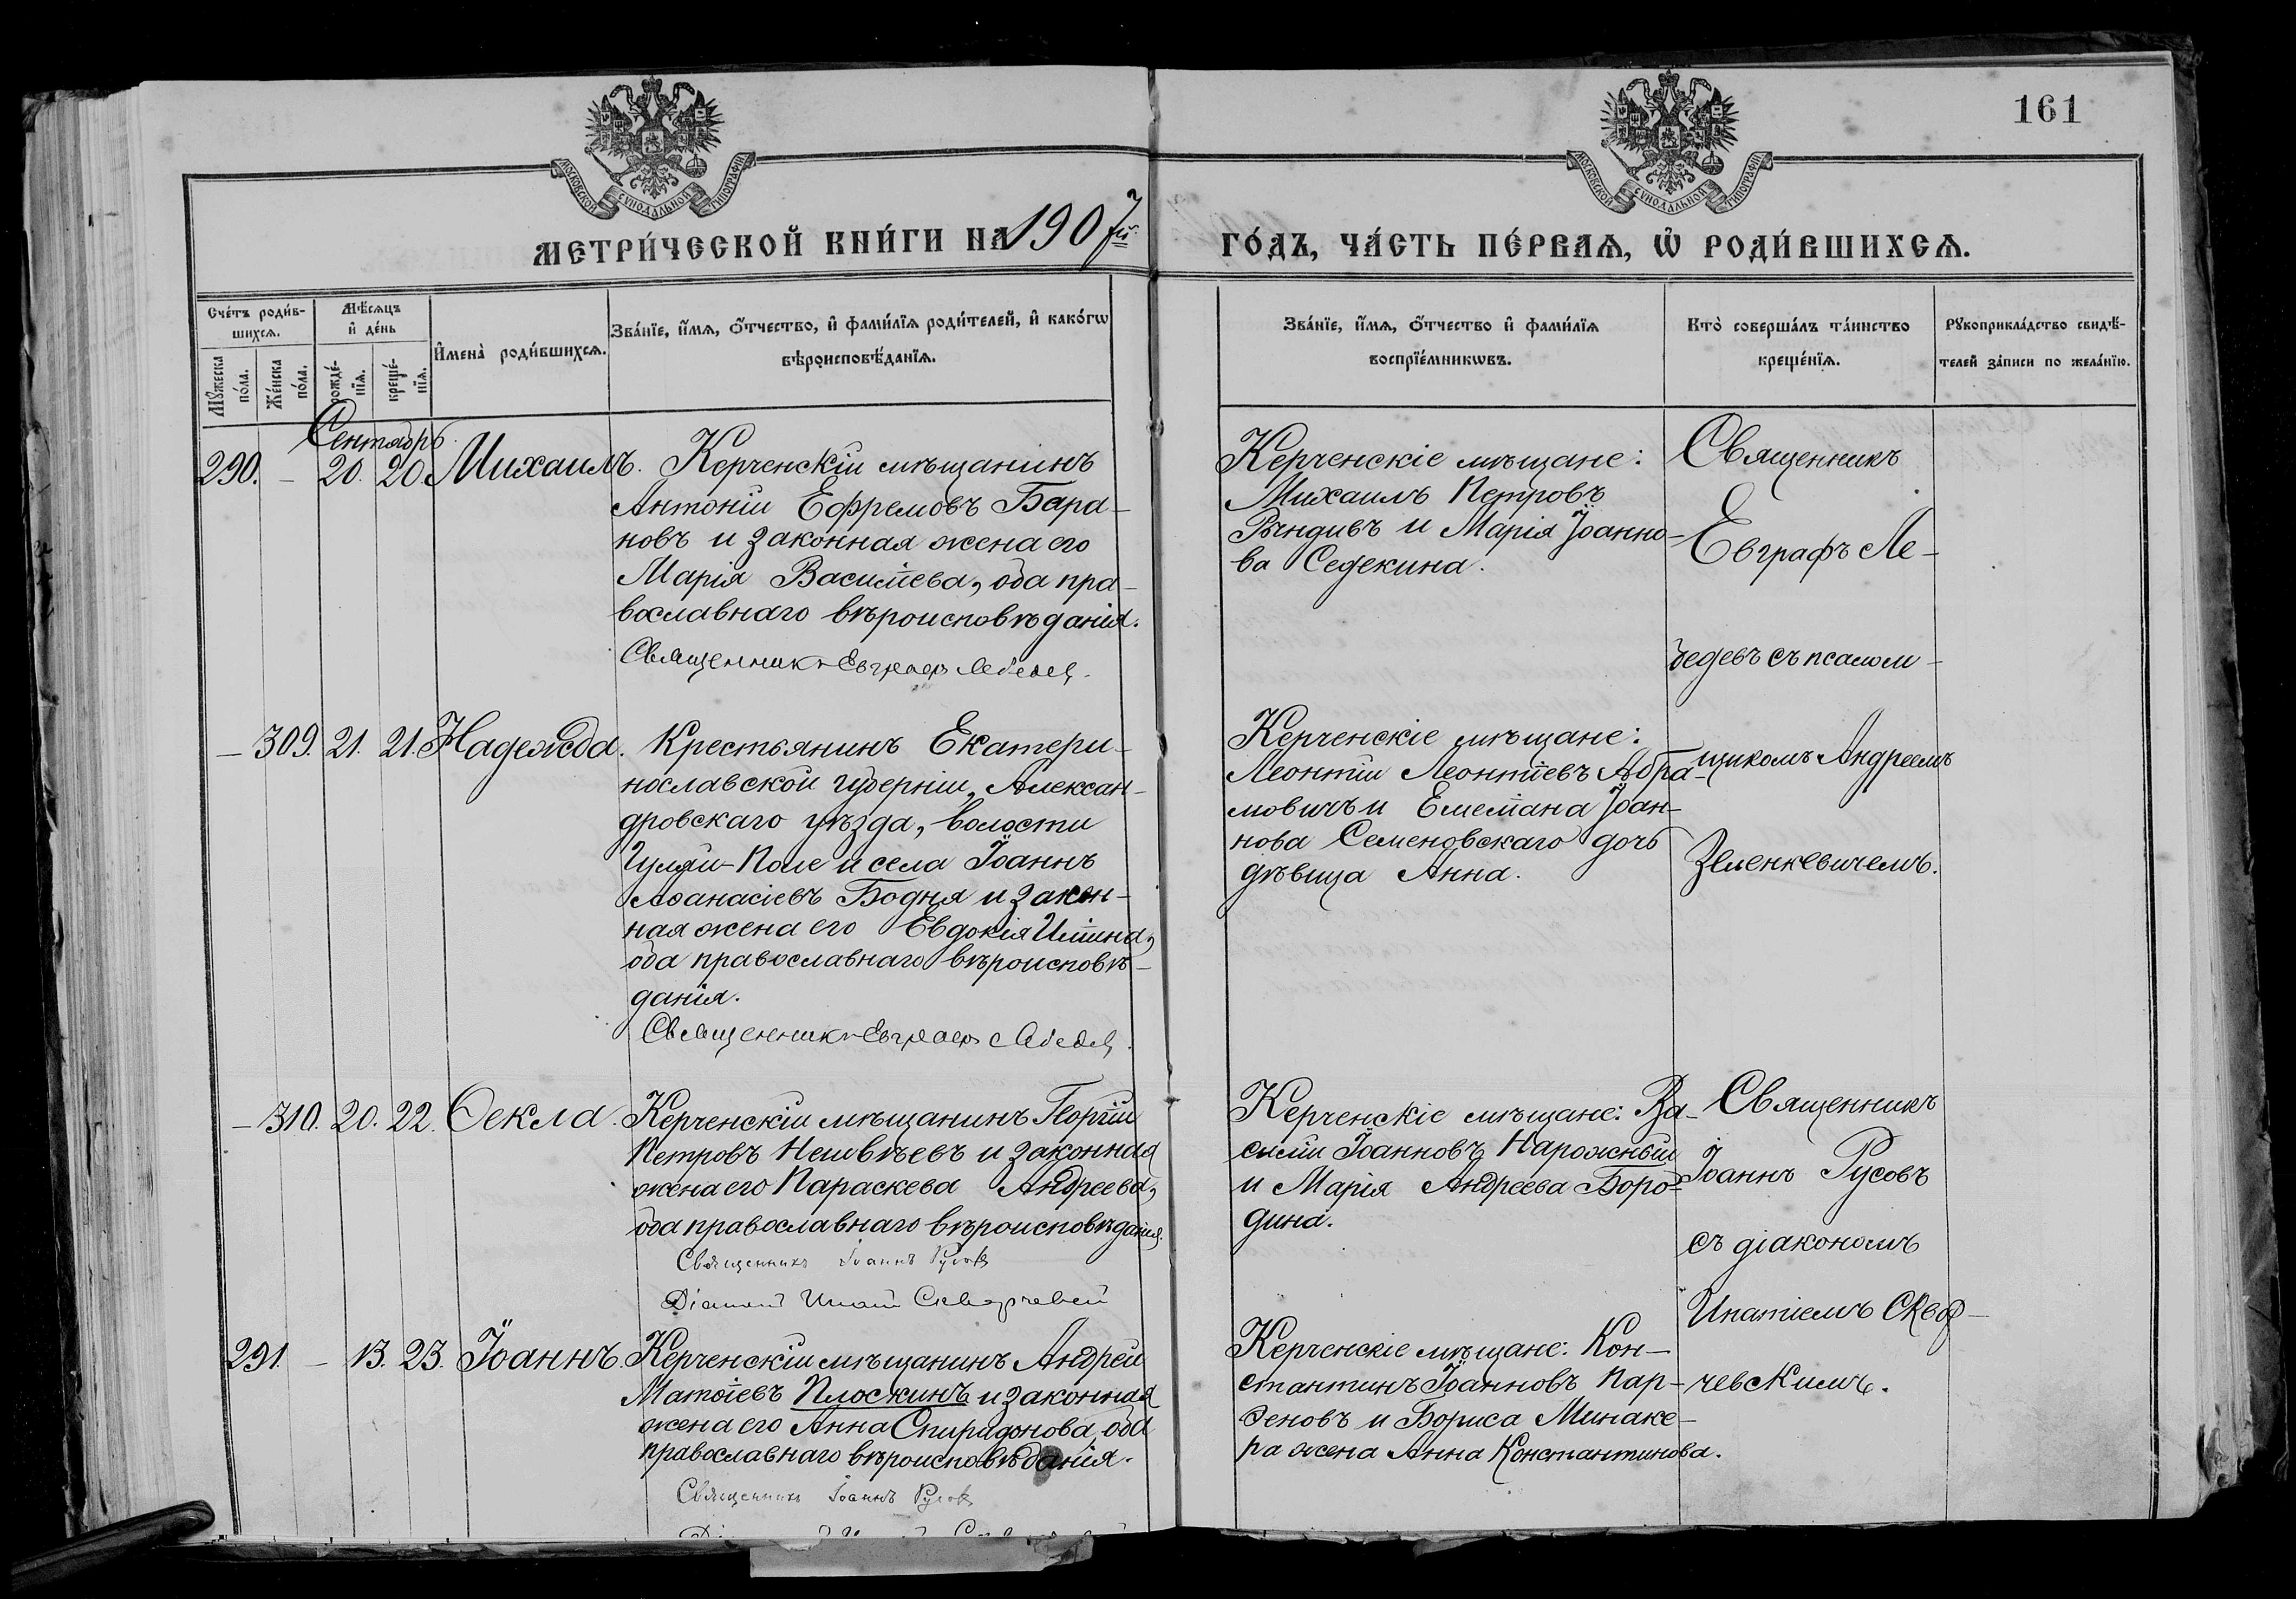 161
МОСКОВСКОЙ СѴНОДАЛЬНОЙ ТИПОГРАФІИ
МОСКОВСКОЙ СѴНОДАЛЬНОЙ ТИПОГРАФІИ
МЕТРИ́ЧЕСКОЙ КНИ́ГИ НА 1907й
ГО́ДЪ, ЧА́СТЬ ПЕ́РВАѦ, Ѡ҆ РОДИ́ВШИХСѦ.
Сче́тъ роди́в-
шихсѧ.
Мꙋ́жеска
по́ла.
Же́нска
по́ла.
Мѣ́сѧцъ
и҆ де́нь
рожде́-
нїѧ.
креще́-
нїѧ.
И҆мена̀ роди́вшихсѧ.
Зва́нїе, и҆́мѧ, ѻ҆́тчество, и҆ фами́лїѧ роди́телей, и҆ како́гѡ
вѣроисповѣ́данїѧ.
Зва́нїе, и҆́мѧ, ѻ҆́тчество и҆ фами́лїѧ
воспрїе́мникѡвъ.
Кто̀ соверша́лъ та́инство
креще́нїѧ.
Рꙋкоприкла́дство свидѣ́-
телей за́писи по жела́нїю.
Сентябрь.
290. – 20. 20. Михаилъ.
Керченскій мѣщанинъ
Антоній Ефремовъ Бара-
новъ и законная жена его
Марія Васильева, оба пра-
вославнаго вѣроисповѣданія.
Священникъ Евграфъ Лебедев
Керченскіе мѣщане:
Михаилъ Петровъ
Рындивъ и Марія Іоанно-
ва Седекина.
Священникъ
Евграфъ Ле-
бедевъ съ псалом-
щикомъ Андреемъ
Зеленкевичемъ.
– 309. 21. 21. Надежда.
Крестьянинъ Екатери-
нославской губерніи, Алексан-
дровскаго уѣзда, волости
Гуляй-Поле и села Іоаннъ
Аѳанасіевъ Бодня и закон-
ная жена его Евдокія Ильина,
оба православнаго вѣроисповѣ-
данія.
Священникъ Евграфъ Лебедев
Керченскіе мѣщане:
Леонтій Леонтіевъ Абра-
мовичъ и Емельяна Іоан-
нова Семеновскаго дочь
дѣвица Анна.
– 310. 20. 22. Ѳекла.
Керченскій мѣщанинъ Георгій
Петровъ и законная
жена его Параскева Андреева,
оба православнаго вѣроисповѣданія.
Священникъ Іоаннъ Русовъ
Діаконъ Ипатій Скворчевскій
Керченскіе мѣщане: Ва-
силій Іоанновъ Нарожный
и Марія Андреева Боро-
дина.
Священникъ
Іоаннъ Русовъ
съ діакономъ
Ипатіемъ Сквор-
чевскимъ.
291. – 13. 23. Іоаннъ.
Керченскій мѣщанинъ Андрей
Матѳіевъ Плоскинъ и законная
жена его Анна Спиридонова, оба
православнаго вѣроисповѣданія.
Священникъ Іоаннъ Русовъ
Керченскіе мѣщане: Кон-
стантинъ Іоанновъ Пар-
ѳеновъ и Бориса Минаке-
ра жена Анна Константинова.